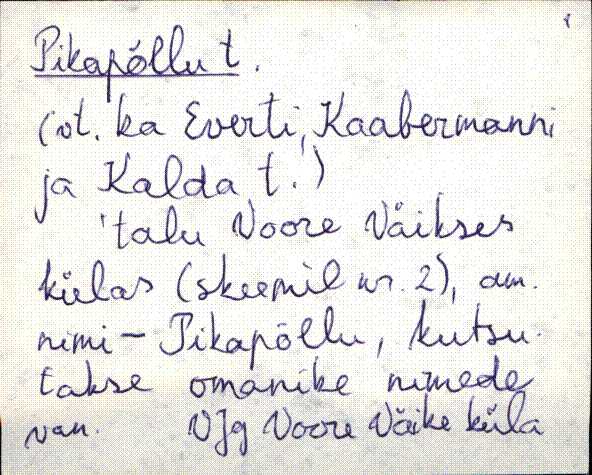 Pikapõllu t.
(vt. ka Everti, Kaabermanni
ja Kalda t.)
talu Voore Väikses
külas (skeemil nr. 2), am.
nimi – Pikapõllu, kutsu-
takse omanike nimede
van. VJg Voore Väike küla